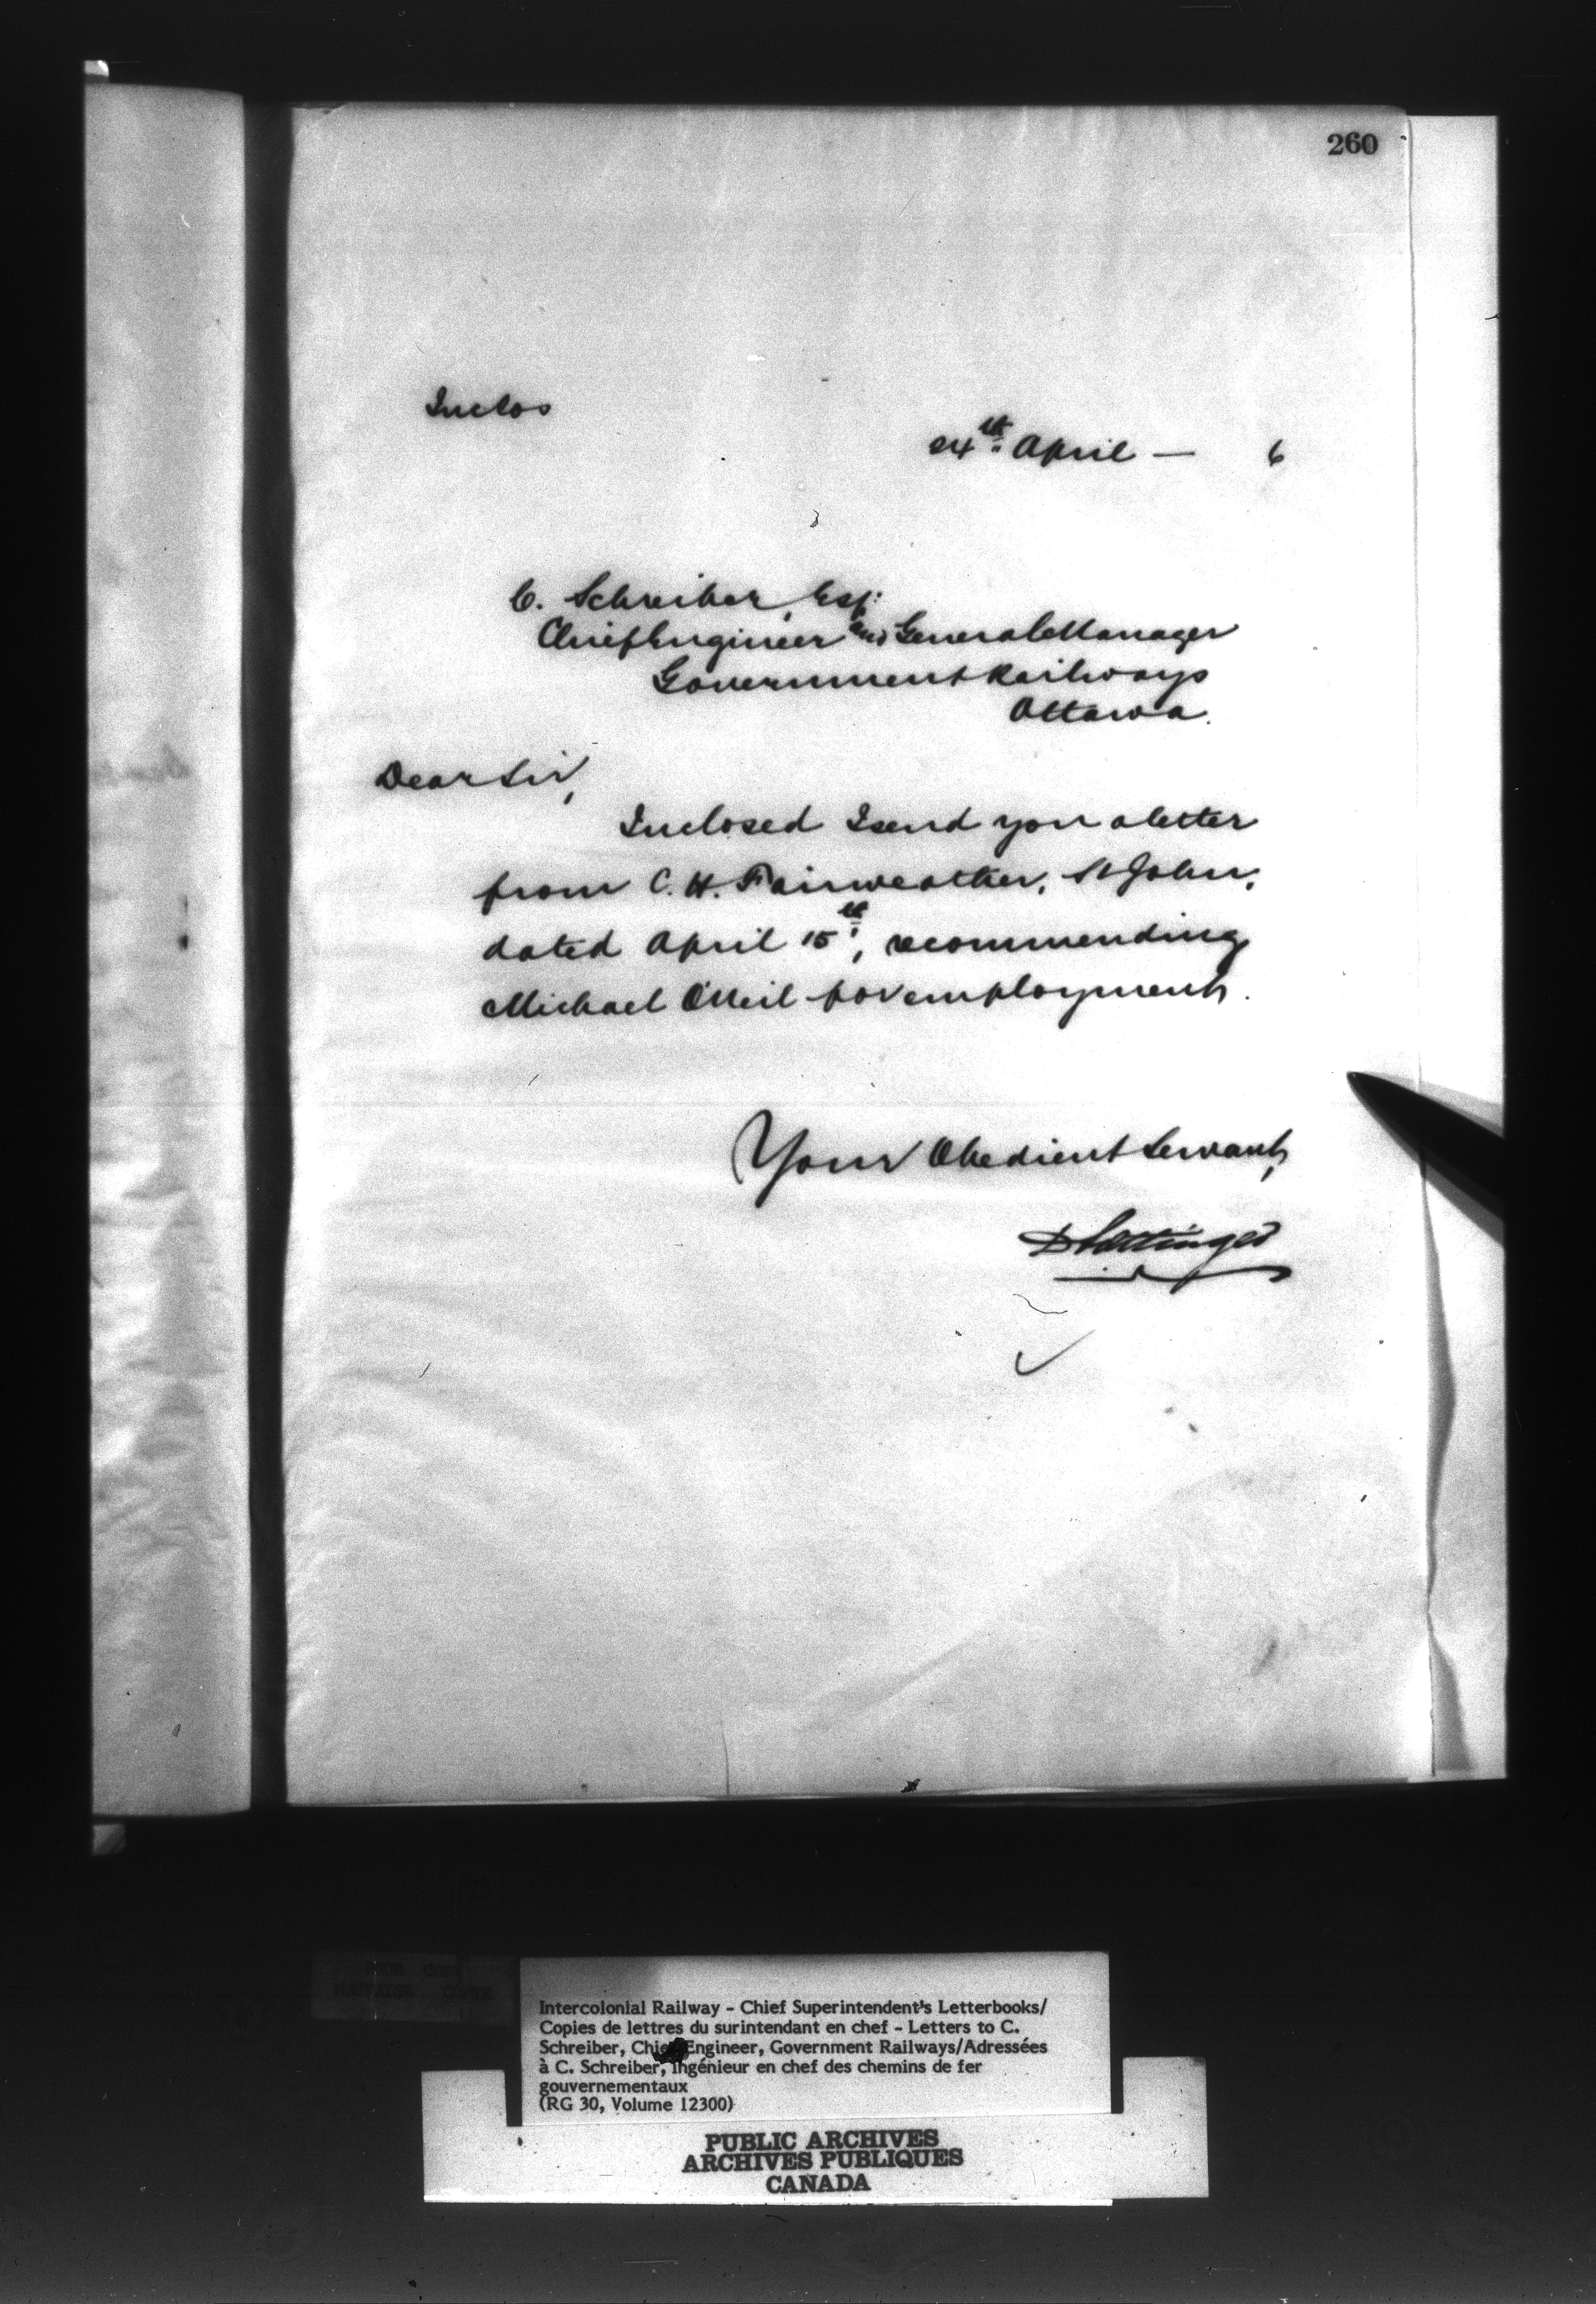 260
Inclos
24th April — 6
C. Schreiber, Esq:
Chief Engineer and General Manager
Government Railways
Ottawa.
Dear Sir,
Inclosed I send you a letter
from C. H. Fairweather, St John,
dated April 15th, recommending
Michael O'Neil for employment.
Your Obedient Servant,
D Pottinger
Intercolonial Railway - Chief Superintendent's Letterbooks/
Copies de lettres du surintendant en chef - Letters to C.
Schreiber, Chief Engineer, Government Railways/Adressées
à C. Schreiber, Ingénieur en chef des chemins de fer
gouvernementaux
(RG 30, Volume 12300)
PUBLIC ARCHIVES
ARCHIVES PUBLIQUES
CANADA